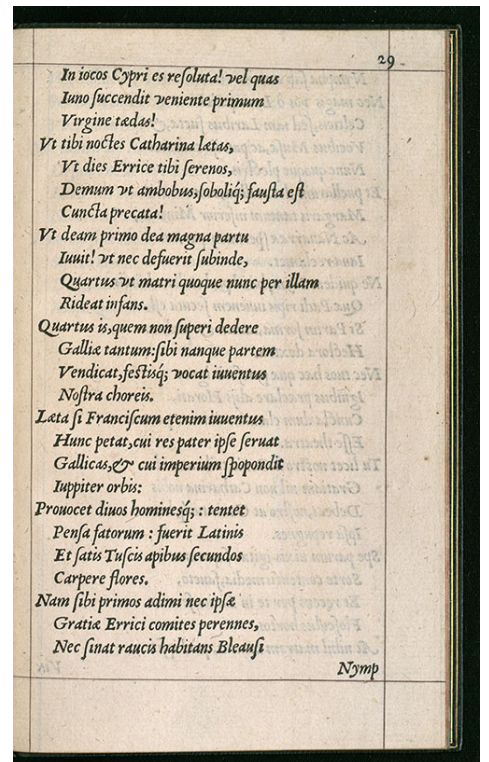 29
In iocos Cypri es reſoluta! vel quas
Iuno ſuccendit veniente primum
Virgine tædas!
Vt tibi noctes Catharina lætas,
Vt dies Errice tibi ſerenos,
Demum vt ambobus, ſoboliq́; fauſta eſt
Cuncta precata!
Vt deam primo dea magna partu
Iuuit! vt nec defuerit ſubinde,
Quartus vt matri quoque nunc per illam
Rideat infans.
Quartus is, quem non ſuperi dedere
Galliæ tantum: ſibi nanque partem
Vendicat, feſtisq́; vocat iuuentus
Noſtra choreis.
Læta ſi Franciſcum etenim iuuentus
Hunc petat, cui res pater ipſe ſeruat
Gallicas, & cui imperium ſpopondit
Iuppiter orbis:
Prouocet diuos hominesq́; : tentet
Penſa fatorum : fuerit Latinis
Et ſatis Tuſcis apibus ſecundos
Carpere flores.
Nam ſibi primos adimi nec ipſæ
Gratiæ Errici comites perennes,
Nec ſinat raucis habitans Bleauſi
Nymp